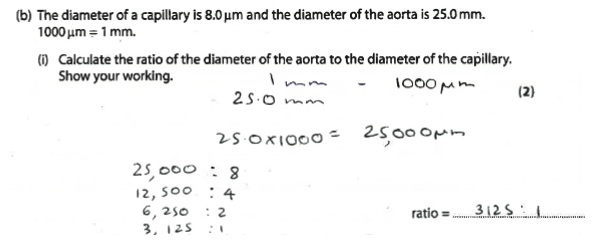 (b) The diameter of a capillary is 8.0 µm and the diameter of the aorta is 25.0 mm.
1000 µm = 1 mm.
(i) Calculate the ratio of the diameter of the aorta to the diameter of the capillary.
Show your working.
(2)
1 mm - 1000 µm
25.0 mm
25.0 x 1000 = 25,000 µm
25,000 : 8
12,500 : 4
6,250 : 2
3,125 : 1
ratio = 3125 : 1